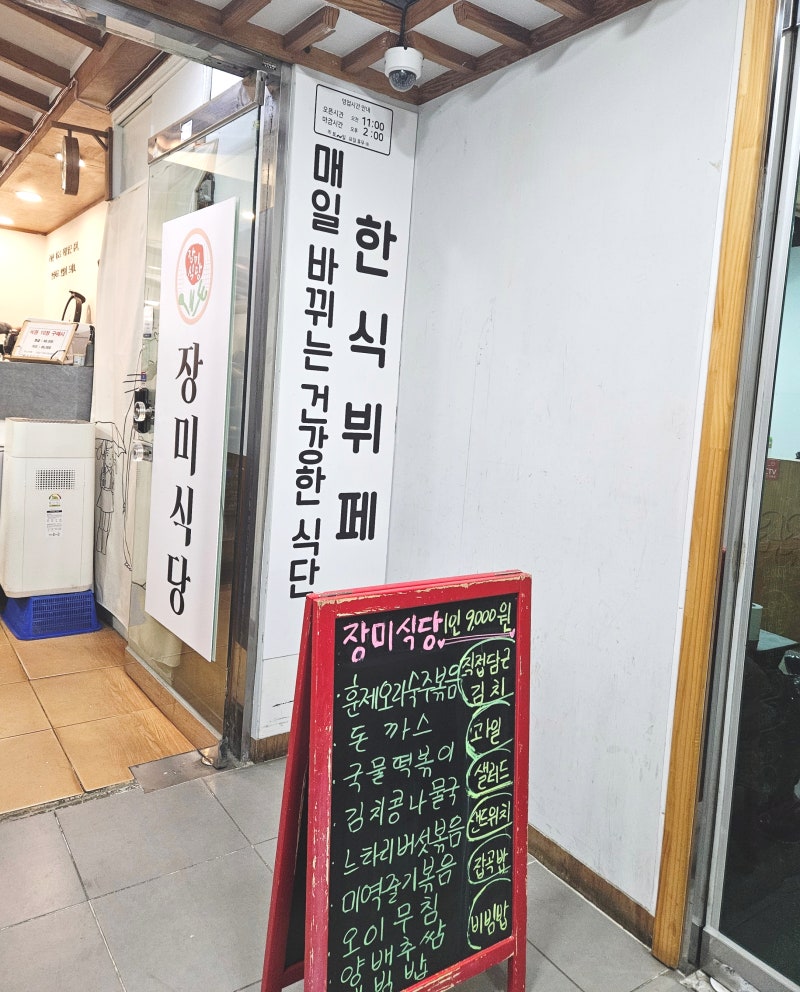 영업시간 안내
오픈시간 오전 11:00
마감시간 오후 2:00
한식뷔페
매일 바뀌는 건강한 식단
장미식당
장미식당
장미식당 1인 9,000원
훈제오리숙주볶음
돈까스
국물떡볶이
김치콩나물국
느타리버섯볶음
미역줄기볶음
오이무침
양배추쌈
직접담근
김치
과일
샐러드
샌드위치
잡곡밥
비빔밥